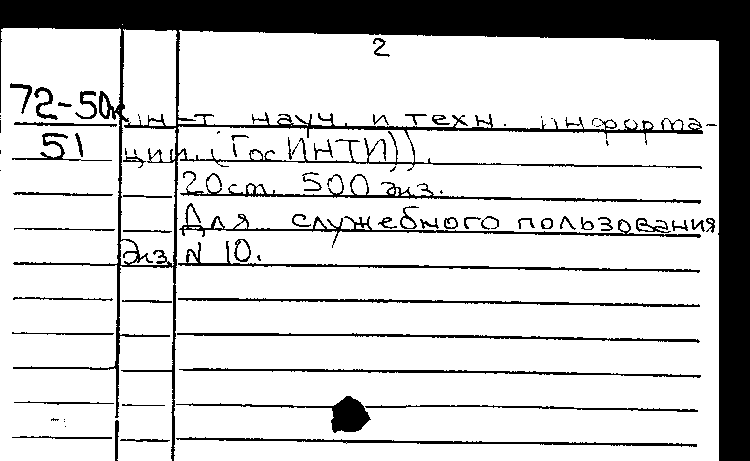 2
72-50ж ин-т науч. и техн. информа-
51 ции. (ГосИНТИ)).
20 см. 500 экз.
Для служебного пользования
Экз N 10.